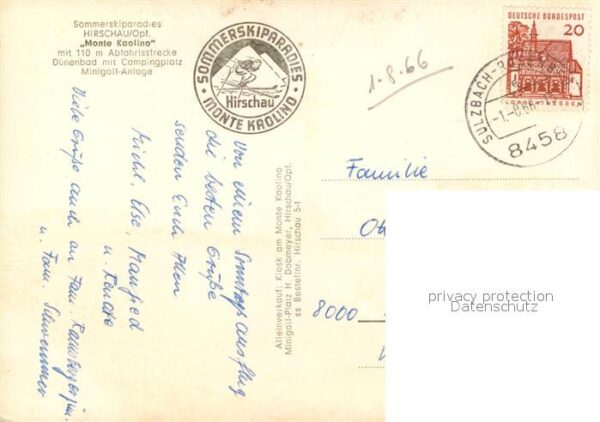 Sommerskiparadies
HIRSCHAU/Opf.
„Monte Kaolino"
mit 110 m Abfahrtsstrecke
Dünenbad mit Campingplatz
Minigolf-Anlage
· SOMMERSKIPARADIES ·
Hirschau
MONTE KAOLINO
1.8.66
DEUTSCHE BUNDESPOST
20
LORSCH/HESSEN
SULZBACH-RO
-1.-8.66
8458
Von einem Sonntagsausflug
die besten Grüße
senden Euch allen
Michl, Else Manfred
u. Renate
Viele Grüße auch an Fam.
u. Fam.
Alleinverkauf: Kiosk am Monte Kaolino
Minigolf-Platz H. Dobmeyer, Hirschau/Opf.
ss Bestellnr. Hirschau 5-1
Familie
8000
privacy protection
Datenschutz